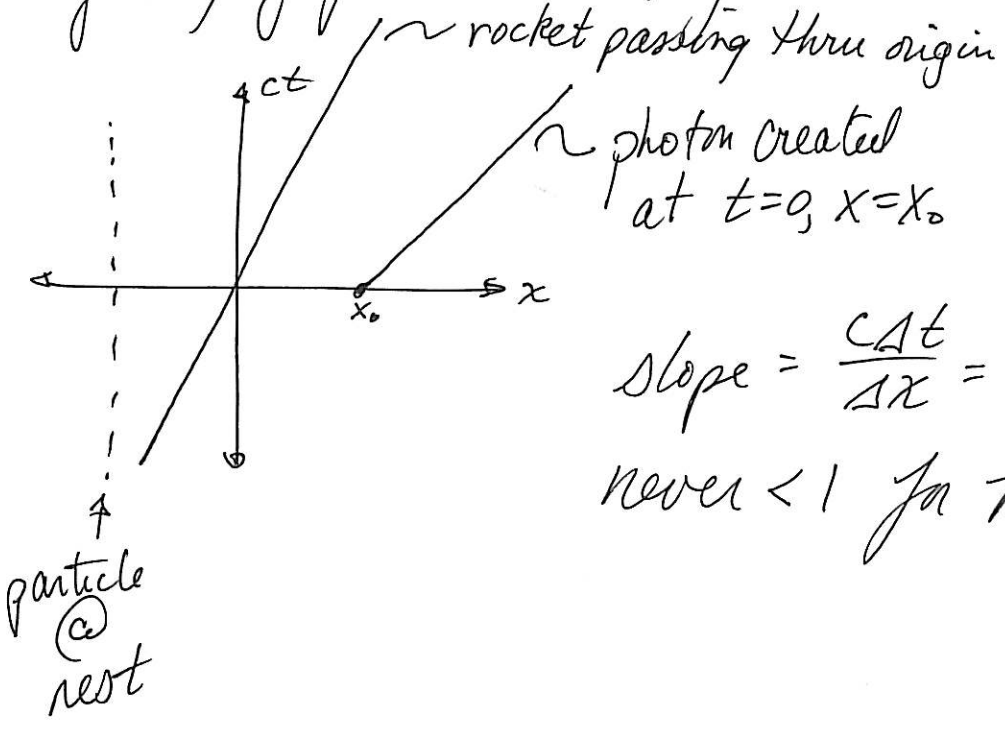 ~ rocket passing thru origin
ct
~ photon created
at t=0, x=x₀
x
x₀
slope = cΔt/Δx =
never < 1 for
particle
@
rest